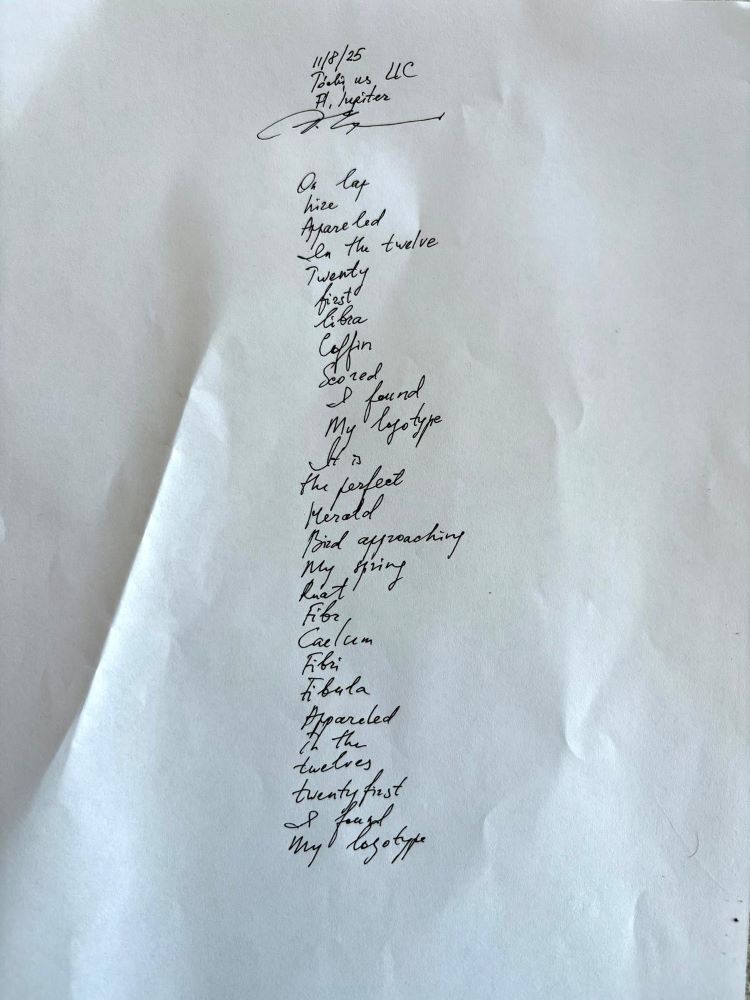 11/8/25
us LLC
Fl, Jupiter
On lap
hire
Appareled
In the twelve
Twenty
first
libra
Coffin
Scored
I found
My logotype
It is
the perfect
Herald
Bird approaching
My spring
Ruat
Fibr
Caelum
Fibri
Fibula
Appareled
In the
twelves
twentyfirst
I found
My logotype